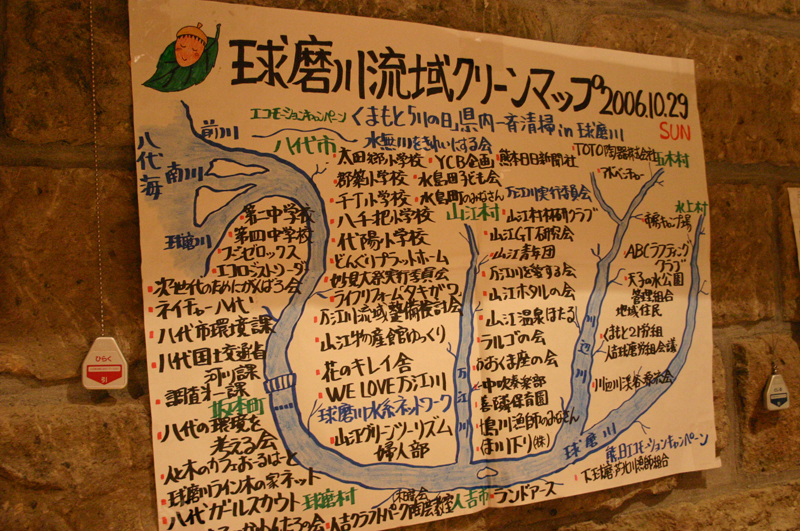 球磨川流域クリーンマップ 2006.10.29
SUN
エコモーションキャンペーン くまもと「川の日」県内一斉清掃 in 球磨川
水無川をきれいにする会
八代海
前川
南川
球磨川
八代市
太田郷小学校
郡築小学校
千丁小学校
八千把小学校
代陽小学校
どんぐりプラットホーム
妙見大祭実行委員会
ライフリフォームタキガワ
万江川流域整備検討会
山江物産館ゆっくり
花のキレイ舎
WE LOVE 万江川
球磨川水系ネットワーク
山江グリーンツーリズム
婦人部
YCB企画
水島田子ども会
水島町のみなさん
熊本日日新聞社
TOTO
万江川実行委員会
山江村
山江村村研クラブ
山江GT研究会
山江青年団
万江川を愛する会
山江ホタルの会
山江温泉ほたる
ラルゴの会
おおくま座の会
中吹奏楽部
喜曙保育園
鳴川漁師のみなさん
球磨川下り(株)
五木村
水上村
ABCラフティング
クラブ
天子の水公園
管理組合
地域住民
第二中学校
第四中学校
フジゼロックス
エコロジストリーダー
次世代のためにがんばろ会
ネイチャー八代
八代市環境課
八代国土交通省
河川課
調査オ一課
坂本町
八代の環境を
考える会
人と木のカフェおーるはーと
球磨川ライン木の家ネット
八代ガールスカウト
球磨村
人吉クラフトパーク陶芸教室
人吉市
ランドアース
万江川
川辺川
球磨川
熊日エコモーションキャンペーン
ひらく
引